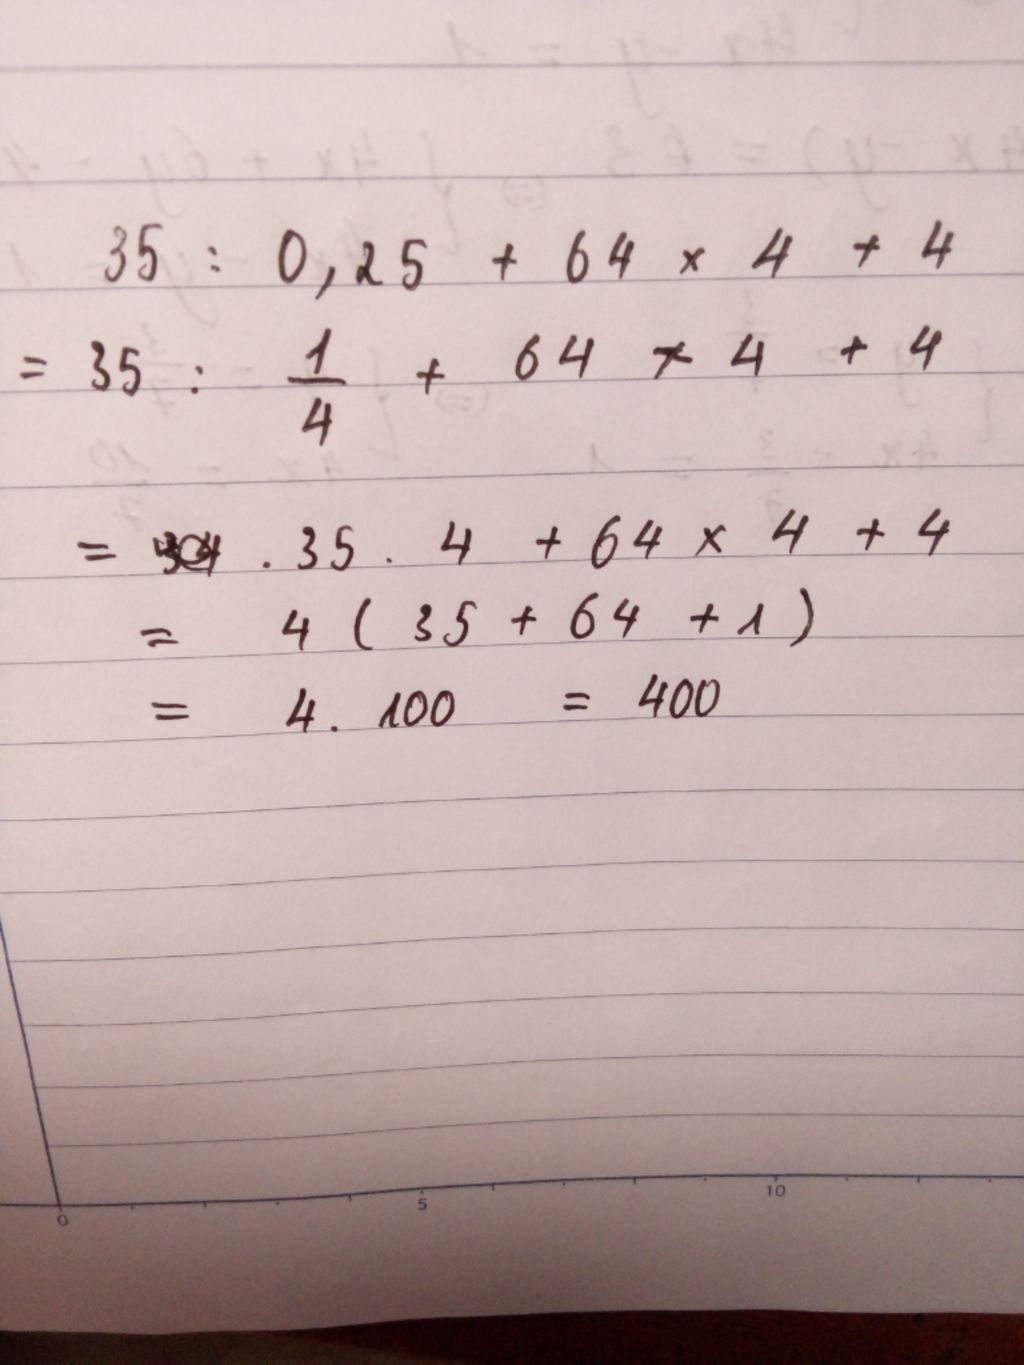 35 : 0,25 + 64 × 4 + 4
= 35 : 1/4 + 64 × 4 + 4
= . 35 . 4 + 64 × 4 + 4
= 4 ( 35 + 64 + 1 )
= 4 . 100 = 400
0 5 10